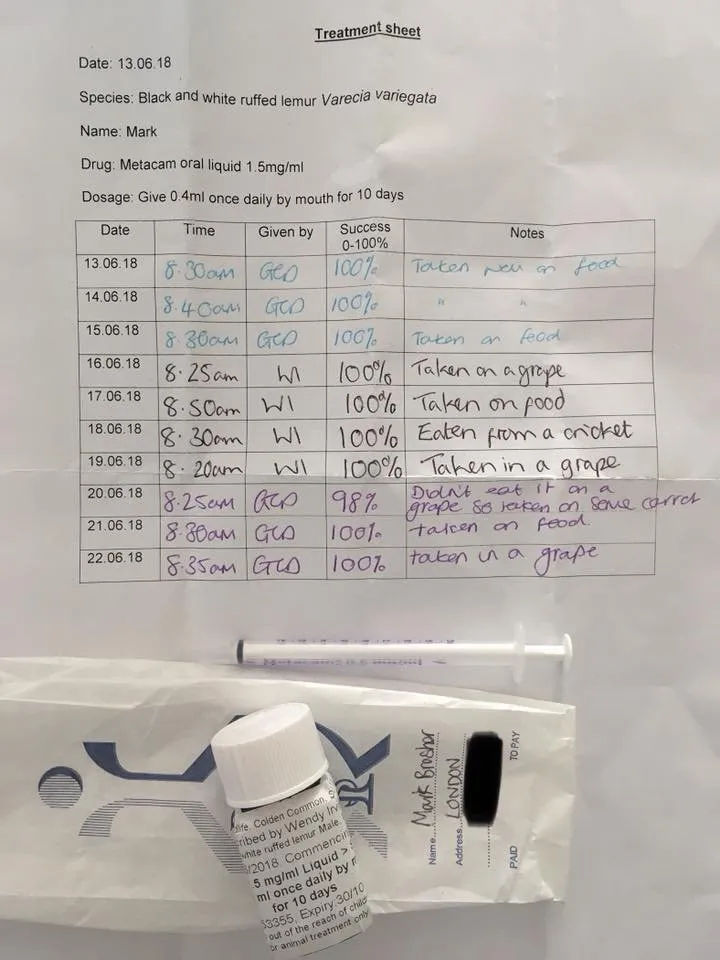 Treatment sheet
Date: 13.06.18
Species: Black and white ruffed lemur Varecia variegata
Name: Mark
Drug: Metacam oral liquid 1.5mg/ml
Dosage: Give 0.4ml once daily by mouth for 10 days
Date Time Given by Success 0-100% Notes
13.06.18 8.30am GCD 100% Taken on food
14.06.18 8.40am GCD 100% " "
15.06.18 8.30am GCD 100% Taken on food
16.06.18 8.25am WI 100% Taken on a grape
17.06.18 8.50am WI 100% Taken on food
18.06.18 8.30am WI 100% Eaten from a cricket
19.06.18 8.20am WI 100% Taken in a grape
20.06.18 8.25am GCD 98% Didn't eat it on a
grape so taken on some carrot
21.06.18 8.30am GCD 100% taken on food
22.06.18 8.35am GCD 100% taken in a grape
Name Mark Brashar
Address LONDON
PAID TO PAY
life, Colden Common, S
cribed by Wendy Irv
white ruffed lemur Male
/2018 Commencin
5 mg/ml Liquid >
ml once daily by
for 10 days
53355, Expiry:30/10
out of the reach of child
or animal treatment only